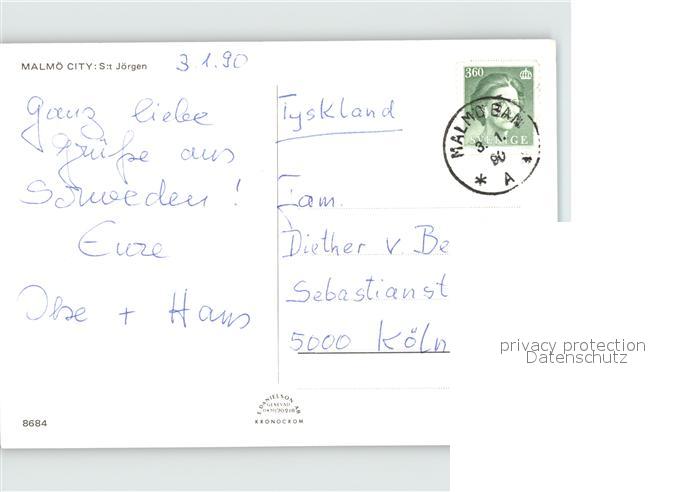 MALMÖ CITY: S:t Jörgen
3.1.90
Ganz liebe
Grüße aus
Schweden!
Eure
Ilse + Hans
Tyskland
Fam.
Diether v. Be
Sebastianst
5000 Köln
360
SVERIGE
MALMÖ BAN
3. 1.
90
* A *
privacy protection
Datenschutz
8684
E. DANIELSON AB
KRONOCROM